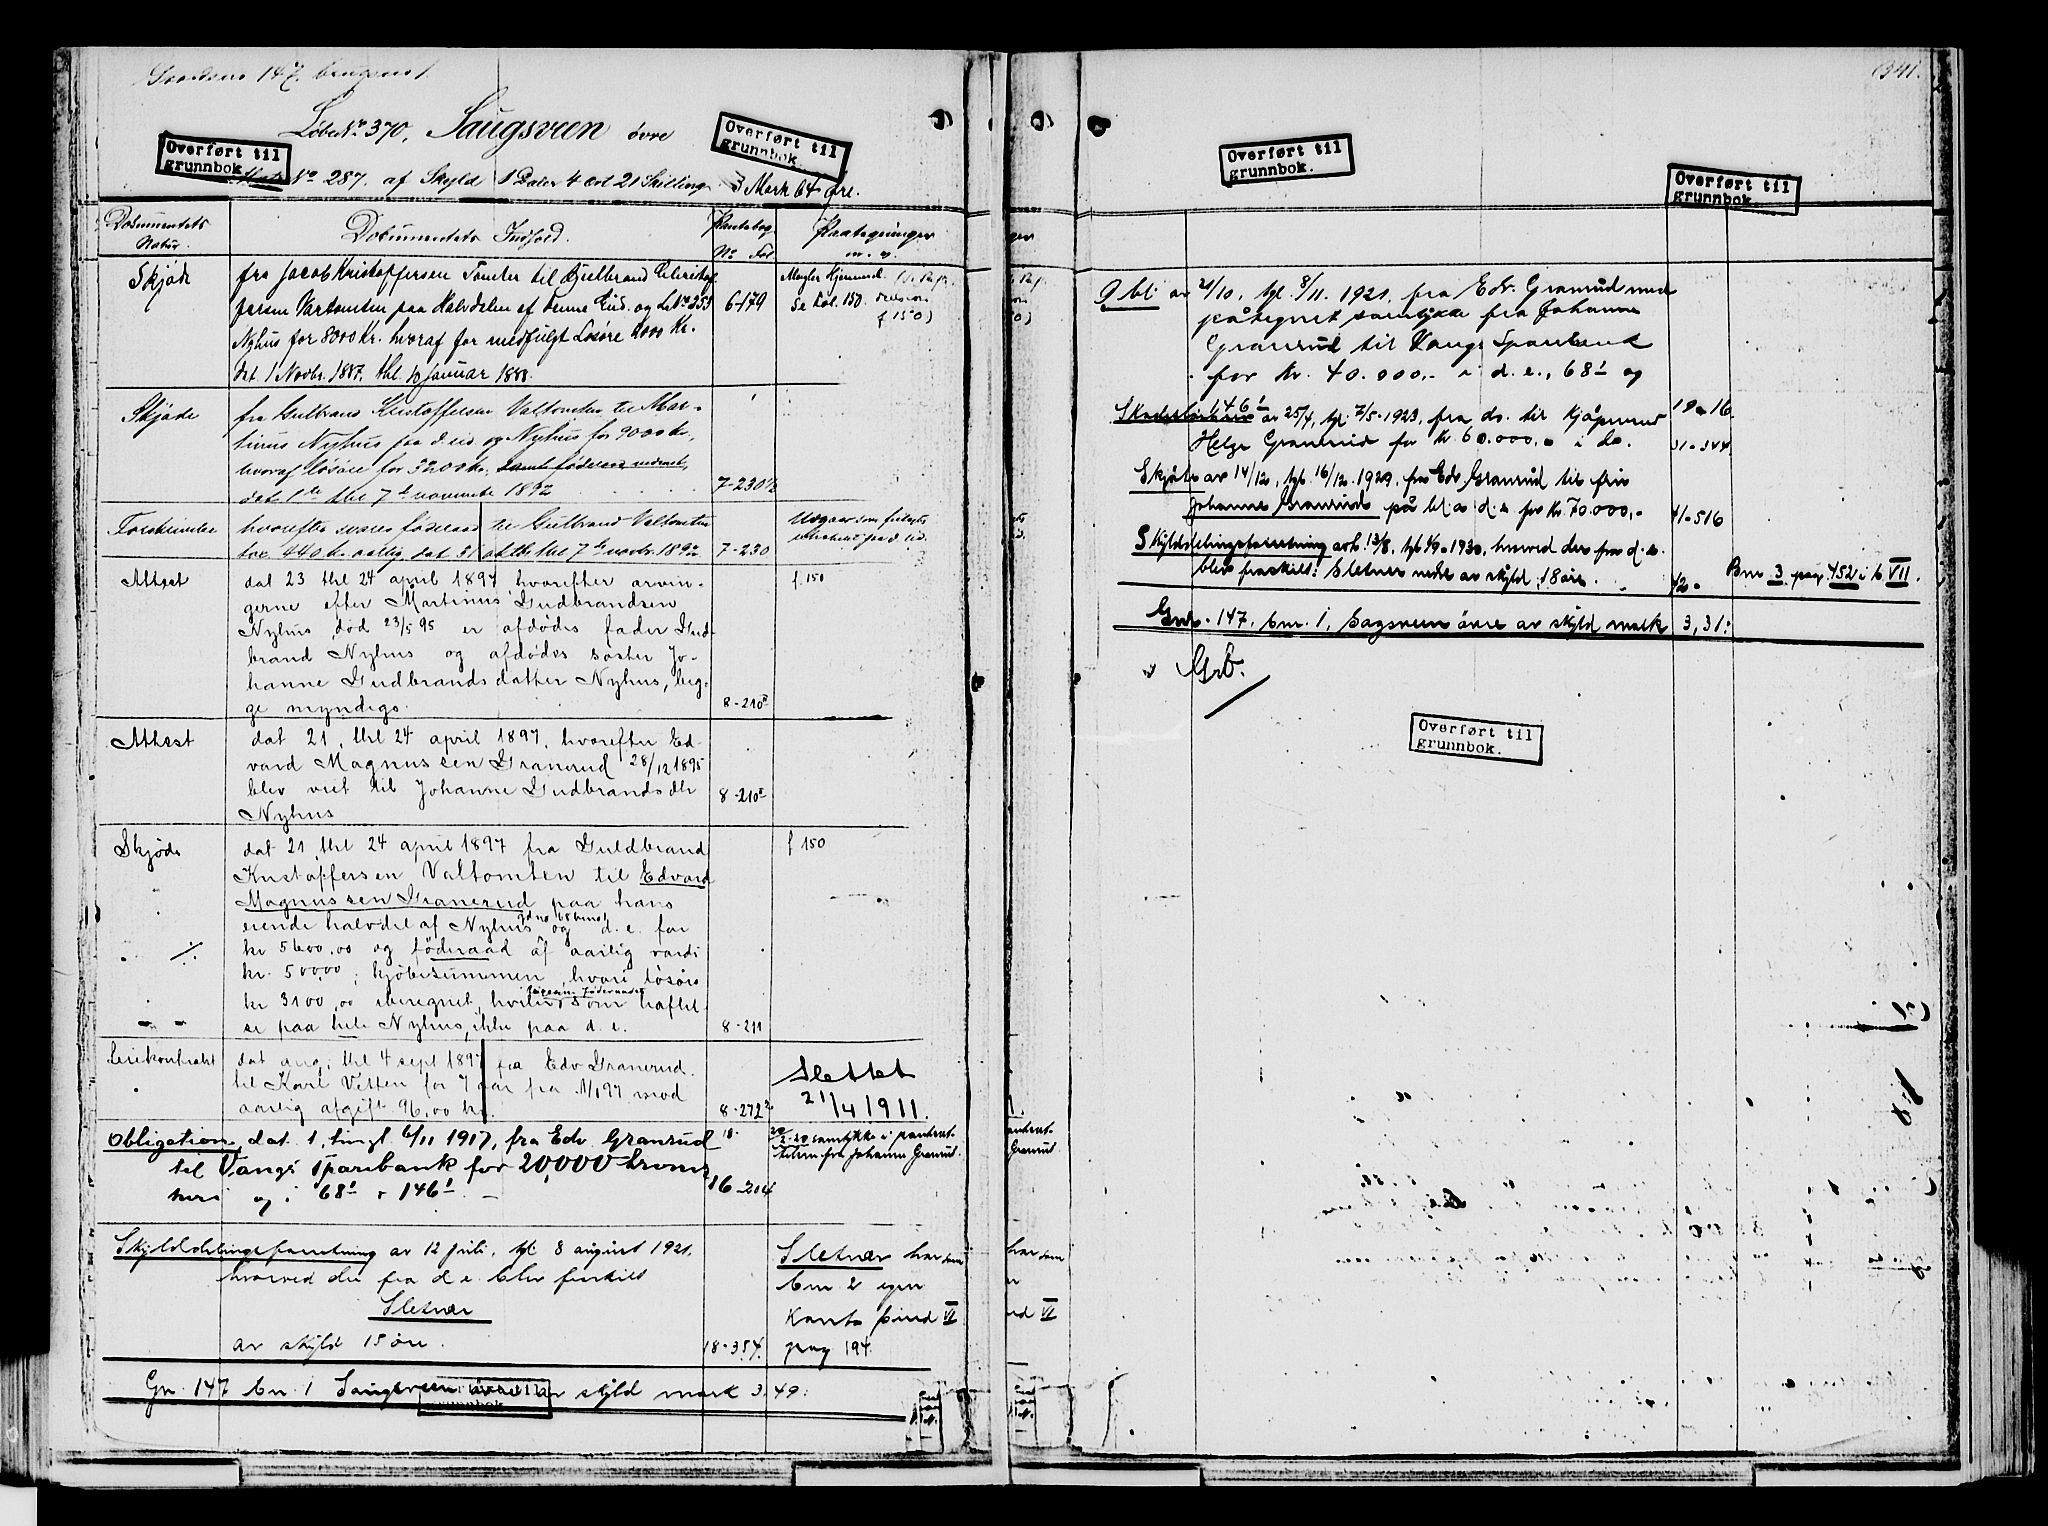 Gaardens 147. brugens 1
Løbe No 370, Saugsveen övre
Overført til
grunnbok.
Overført til
grunnbok.
Matr. No 287. af Skyld 1 Daler 4 ort 21 Skilling 3 Mark 64 Øre.
Documentets
Natur.
Documentets Indhold.
Pantebog
No Fol
Paategninger
m. v.
Skjøde
fra Jacob Kristoffersen Tomter til Guldbrand Christof-
fersen Valtomten paa Halvdelen af denne Eid. og LNo 253
Nyhus for 8000 Kr. hvoraf for medfulgt Løsøre 4000 Kr.
dat 1 Novbr. 1887. thl. 10 Januar 1888.
6-179
Mangler Hjemmel.
Se Fol. 150.
f 150)
Skjøde
fra Gulbrand Kristoffersen Valtomten til Mar-
tinus Nyhus paa d. eid og Nyhus for 9000 kr,
hvoraf løsøre for 3200 kr, samt føderaad
dat 1ste thl 7de november 1892
7-230½
Forskrivelse
hvorefter svares føderaad til Gulbrand Valtomten
for 440 kr aarlig dat 31 thl 7de novbr. 1892
7-230
Attest
dat 23 thl 24 april 1897 hvorefter arvin-
gerne efter Martinus Gudbrandsen
Nyhus, død 23/5 95 er afdødes fader Gud-
brand Nyhus og afdødes søster Jo-
hanne Gudbrandsdatter Nyhus, beg-
ge myndige.
8-210
f 150
Attest
dat 21, thl 24 april 1897, hvorefter Ed-
vard Magnussen Granerud 28/12 1895
blev viet til Johanne Gudbrandsdtr
Nyhus
8-210
Skjøde
dat 21 thl 24 april 1897 fra Guldbrand
Kristoffersen Valtomten til Edvard
Magnussen Granerud paa hans
eiende halvdel af Nyhus og d. e. for
kr 5600,00 og føderaad af aarlig værdi
kr. 500,00; kjøbesummen, hvori løsøre
kr 3100,00 iberegnet, hviler som haftel-
se paa hele Nyhus, ikke paa d. e.
8-211
f 150
Leiekontrakt
dat aug. thl 4 sept 1897 fra Edv Granerud
til Karl Vetten for 7 aar fra 1/1 97 mod
aarlig afgift 96,00 kr.
8-272
Slettet
21/4 1911.
Obligation, dat. 1, tingl 6/11 1917, fra Edv. Granrud
til Vangs Sparebank for 20,000 kroner
heri og i 68¹ + 146¹.
16-204
samtykke i
fra Johanne Granrud.
Skylddelingsforretning av 12 juli, tgl. 8 august 1921,
hvorved der fra d e. blev fraskilt
Sletnær
av skyld 15 øre.
18-354.
Sletnær har som
bnr 2 egen
Konto bind VI
pag 194.
Gnr. 147 bnr. 1 Saugsveen övre av skyld mark 3.49:
341.
Overført til
grunnbok.
Overført til
grunnbok.
Obl. av 21/10, tgl. 8/11. 1921, fra Edv. Granrud med
påtegnet samtykke fra Johanne
Granrud til Vangs Sparebank
for kr. 40.000,- i d. e., 68¹ og
146¹
19-16
av 25/4, tgl. 7/5-1923, fra ds. til kjøpmand
Helge Granrud for kr. 60.000,- i do.
21-344
Skjøte av 14/12, tgl. 16/12. 1929, fra Edv. Granrud til fru
Johanne Granrud på bl. a. d. e for kr. 70.000,-
41-516
Skylddelingsforretning avh. 13/8, tgl. 1/9-1930, hvorved der fra d. e.
blev fraskilt: Sletnær nedre av skyld 18 øre.
42-
Bnr 3 pag 452 i b VII.
Gnr. 147, bnr. 1, Sagsveen övre av skyld mark 3,31:
Grb.
Overført til
grunnbok.